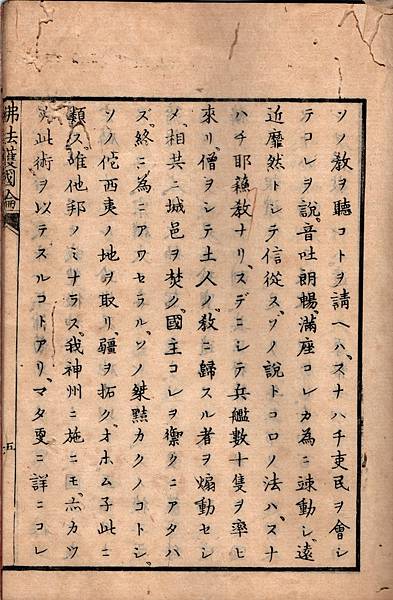 ソノ教ヲ聽コトヲ請ヘハ、スナハチ吏民ヲ會シ
テコレヲ説、音吐朗暢、滿座コレカ為ニ竦動シ、遠
近靡然トシテ信從ス、ソノ説トコロノ法ハ、スナ
ハチ耶蘇教ナリ、スデニシテ兵艦數十隻ヲ率ヒ
來リ、僧ヲシテ土人ノ教ニ歸スル者ヲ煽動セシ
メ、相共ニ城邑ヲ焚ク、國主コレヲ禦クニアタハ
ズ、終ニ為ニアワセラル、ソノ桀黠カクノコトシ、
ソノ佗西夷ノ地ヲ取リ、疆ヲ拓ク、オホム子此ニ
類ス、唯他邦ノミナラス、我神州ニ施ニモ、亦カツ
テ此術ヲ以テスルコトアリ、マタ更ニ詳ニコレ
佛法護國論
五